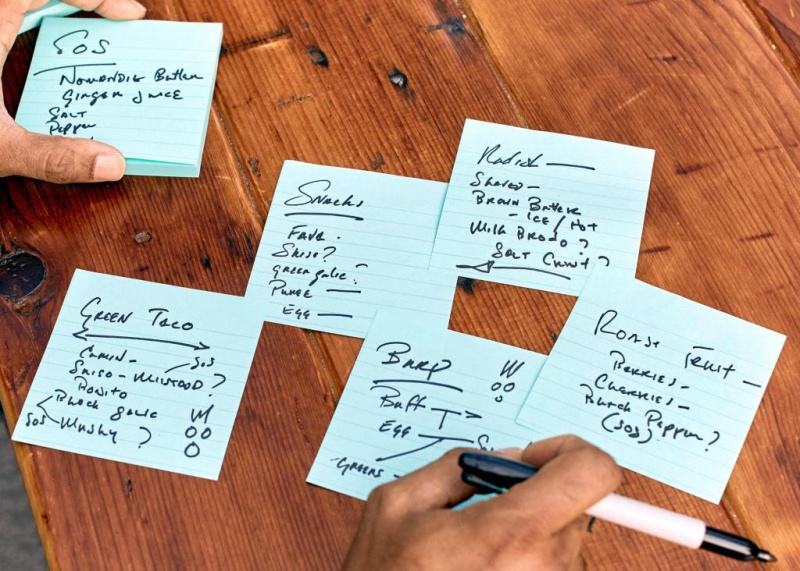 SOS
Butter
Ginger Juice
Salt
Pepper
Snacks
Fava.
Shiso?
Green garlic?
Puree —
Egg —
Radish —
Shaved —
Brown Butter
- Ice / Hot
Milk Brodo?
Salt Crust?
Green Taco
SOS
Shiso - Mustard?
Bonito
Black Garlic
SOS Mushy ?
Buff
Egg
- Greens
Roast Fruit —
Berries -
Cherries -
Pepper?
(SOS)